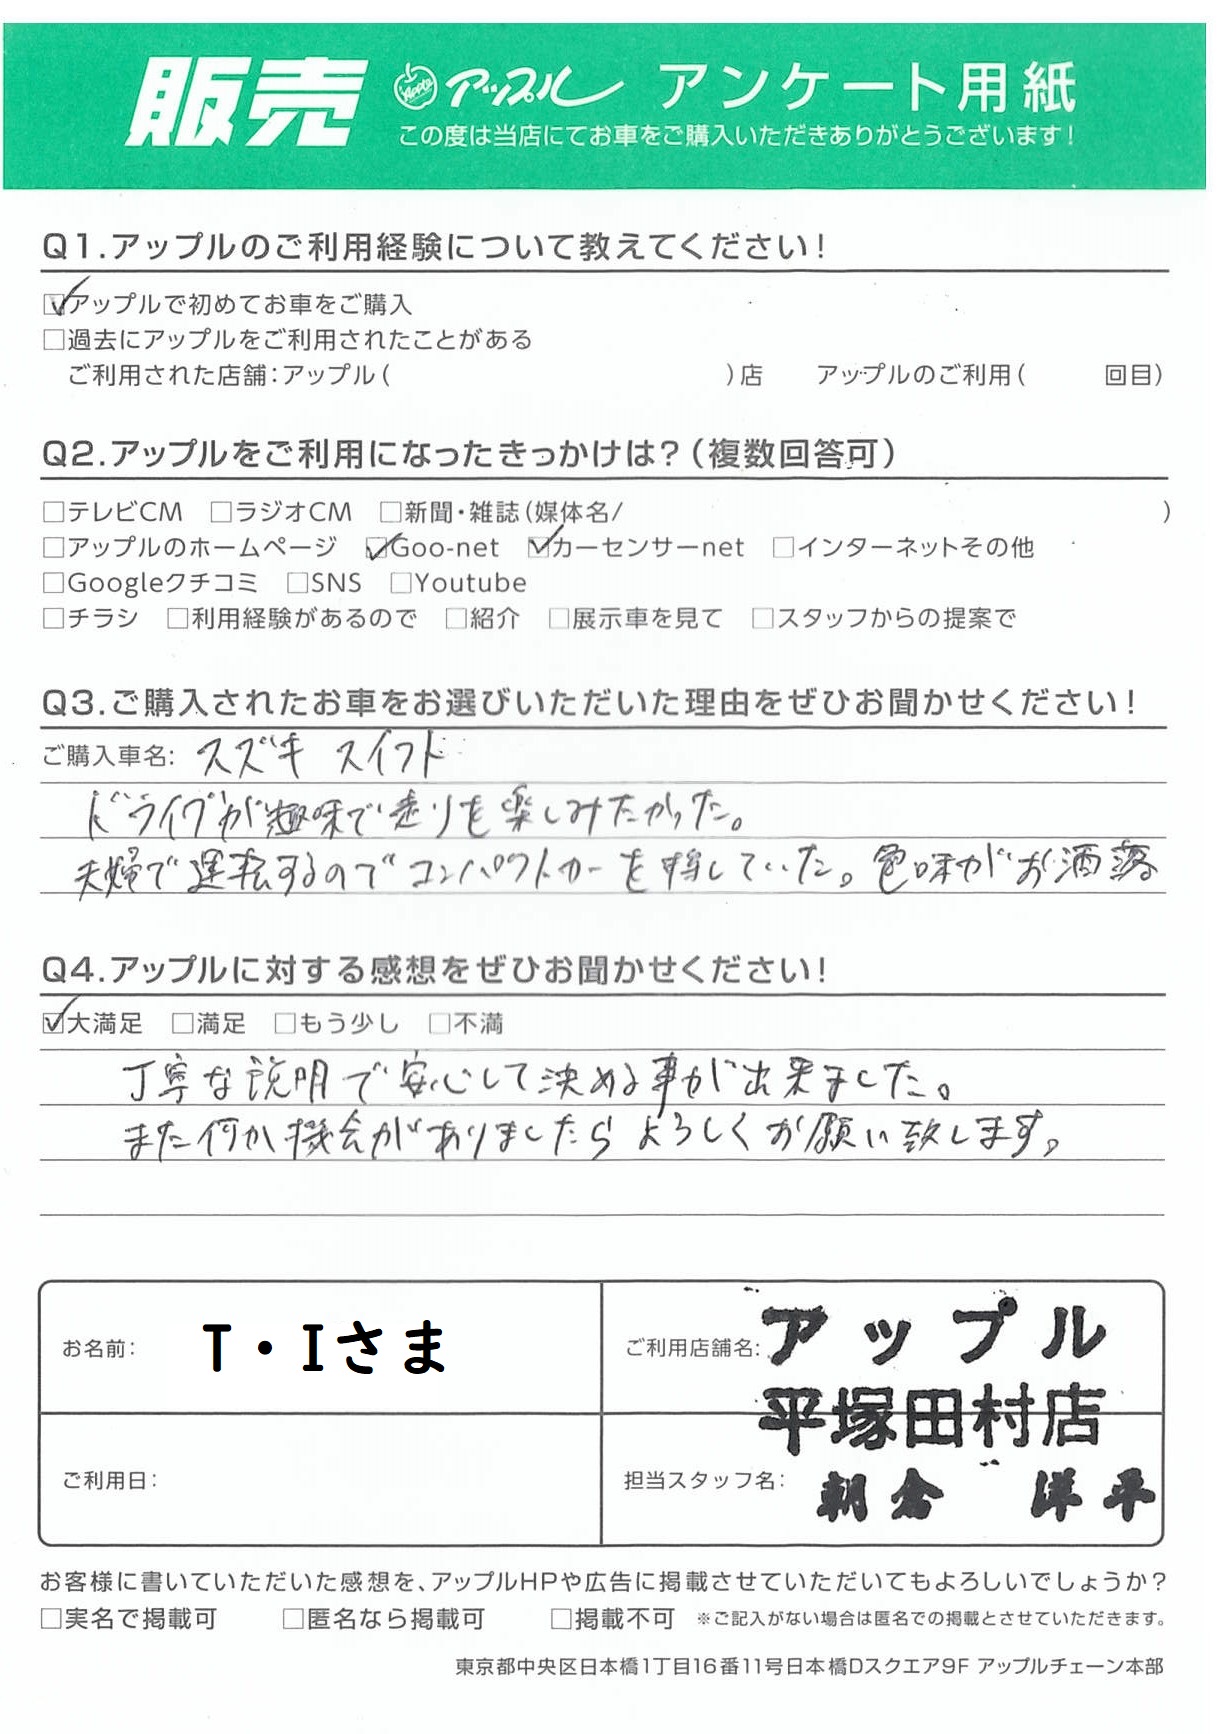 販売 Apple アップル アンケート用紙
この度は当店にてお車をご購入いただきありがとうございます！
Q1.アップルのご利用経験について教えてください！
☑アップルで初めてお車をご購入
□過去にアップルをご利用されたことがある
ご利用された店舗：アップル（ ）店 アップルのご利用（ 回目）
Q2.アップルをご利用になったきっかけは？（複数回答可）
□テレビCM □ラジオCM □新聞・雑誌（媒体名/ ）
□アップルのホームページ ☑Goo-net ☑カーセンサーnet □インターネットその他
□Googleクチコミ □SNS □Youtube
□チラシ □利用経験があるので □紹介 □展示車を見て □スタッフからの提案で
Q3.ご購入されたお車をお選びいただいた理由をぜひお聞かせください！
ご購入車名： スズキ スイフト
ドライブが趣味で走りを楽しみたかった。
夫婦で運転するのでコンパクトカーを探していた。色味がお洒落
Q4.アップルに対する感想をぜひお聞かせください！
☑大満足 □満足 □もう少し □不満
丁寧な説明で安心して決める事が出来ました。
また何か機会がありましたらよろしくお願い致します。
お名前： T・Iさま
ご利用店舗名： アップル
平塚田村店
ご利用日：
担当スタッフ名： 朝倉 洋平
お客様に書いていただいた感想を、アップルHPや広告に掲載させていただいてもよろしいでしょうか？
□実名で掲載可 □匿名なら掲載可 □掲載不可 ※ご記入がない場合は匿名での掲載とさせていただきます。
東京都中央区日本橋1丁目16番11号日本橋Dスクエア9F アップルチェーン本部